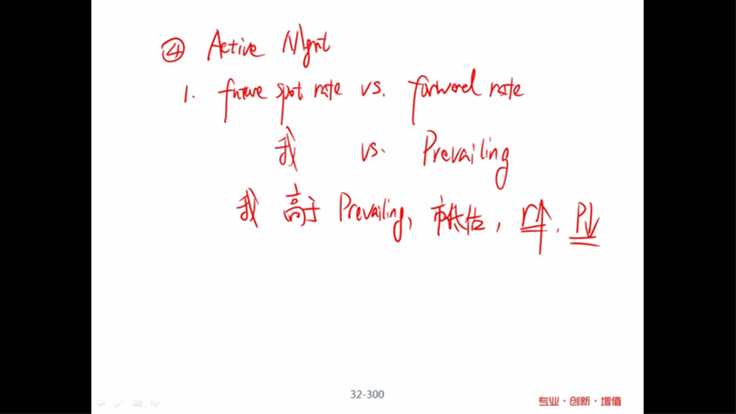 ④ Active Mgmt
1. future spot rate vs. forward rate
我 vs. Prevailing
我 高于 Prevailing, 市低估, r↑. P↓
32-300
专业·创新·增值